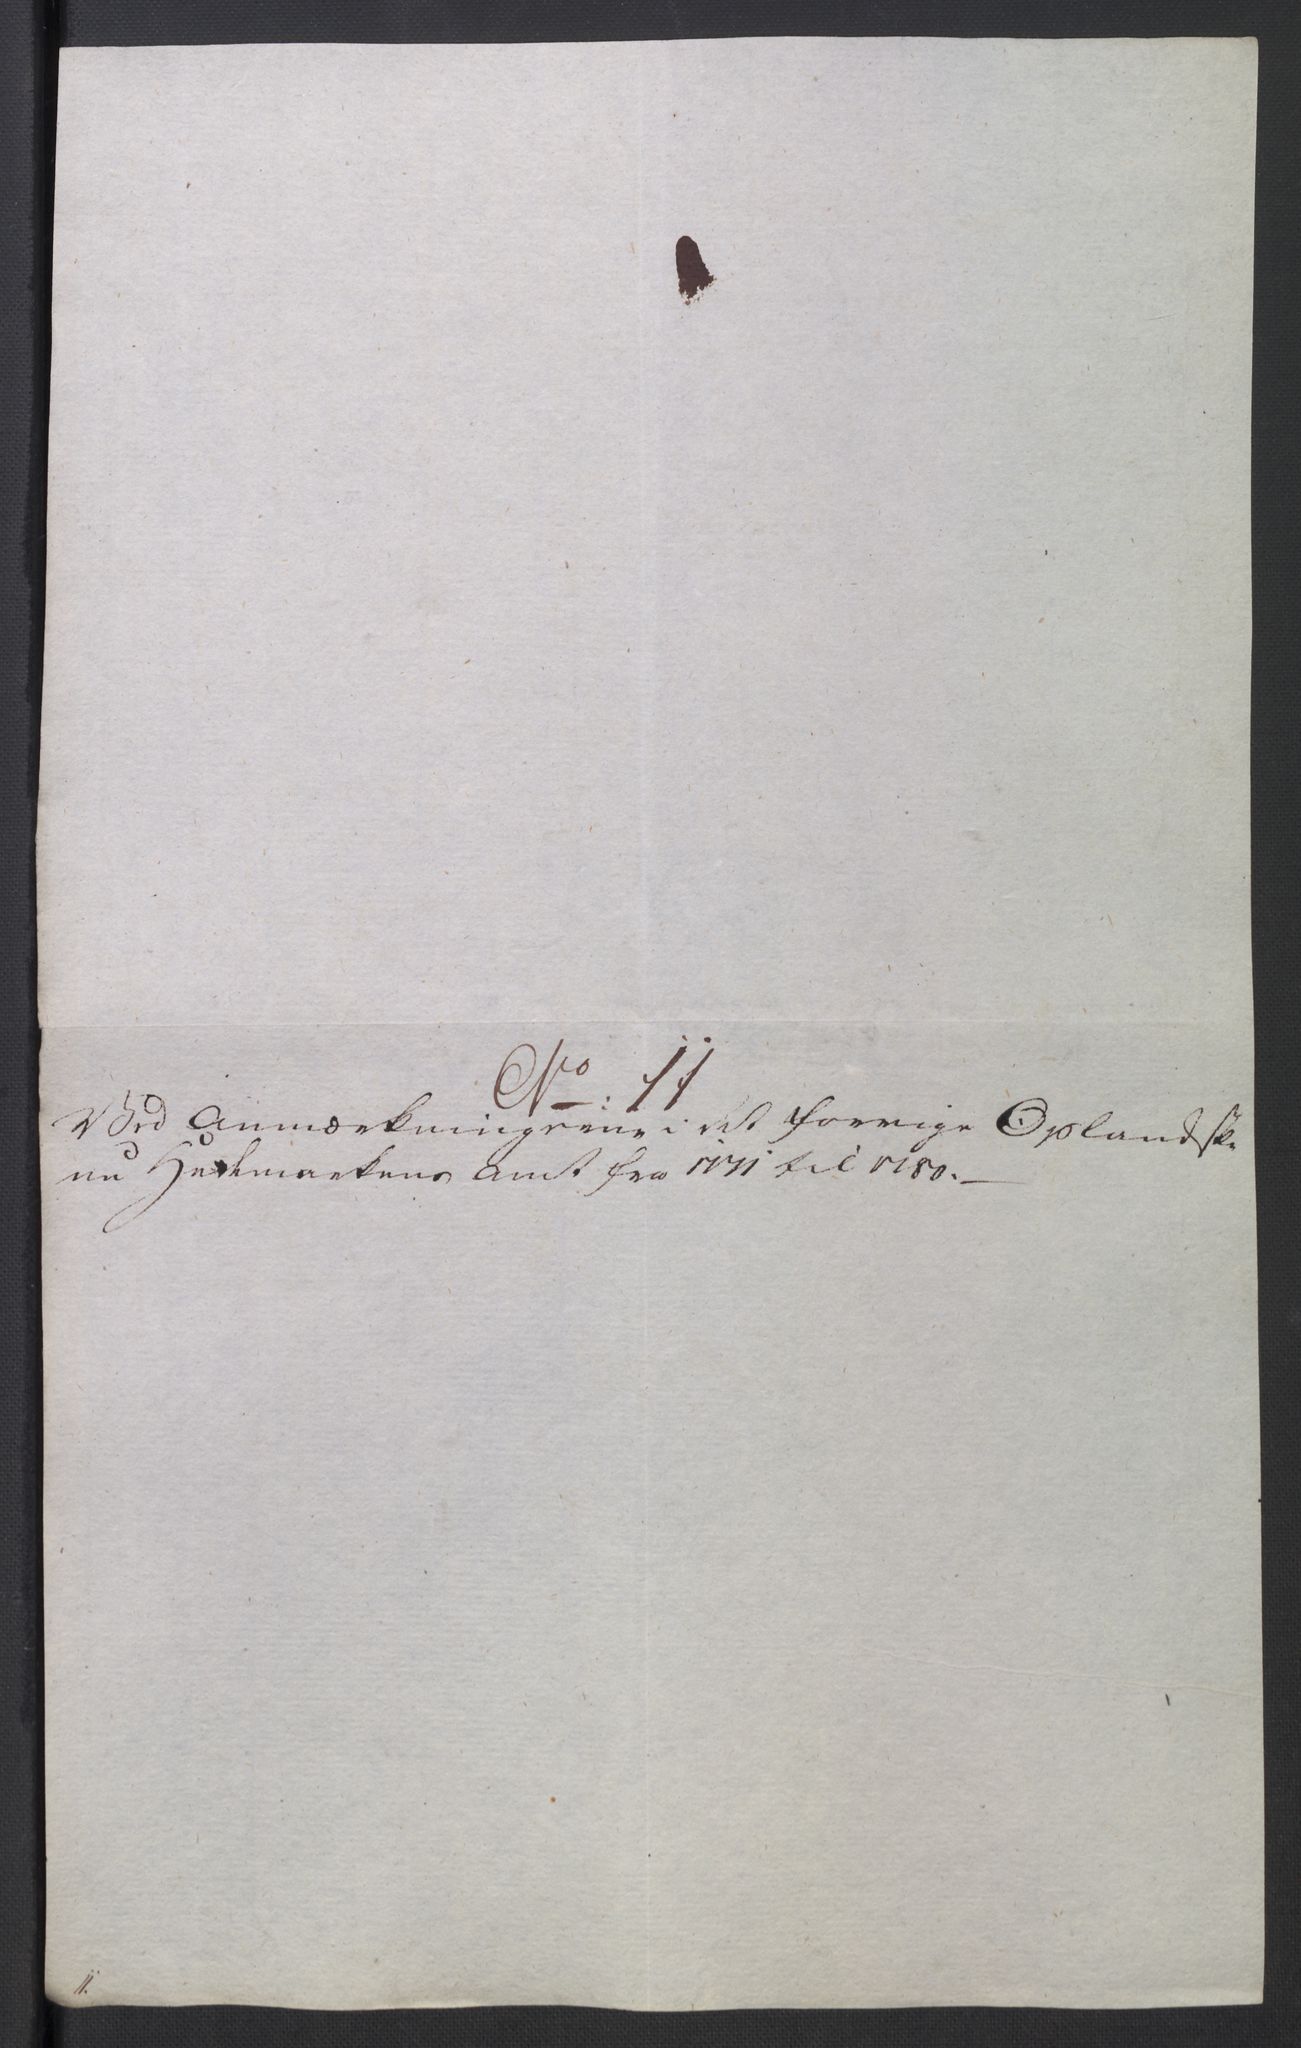 No: 11
Ved Anmærkningerne i det forrige Oplandske
nu Hedemarkens Amt fra 1771 til 1780.
11.